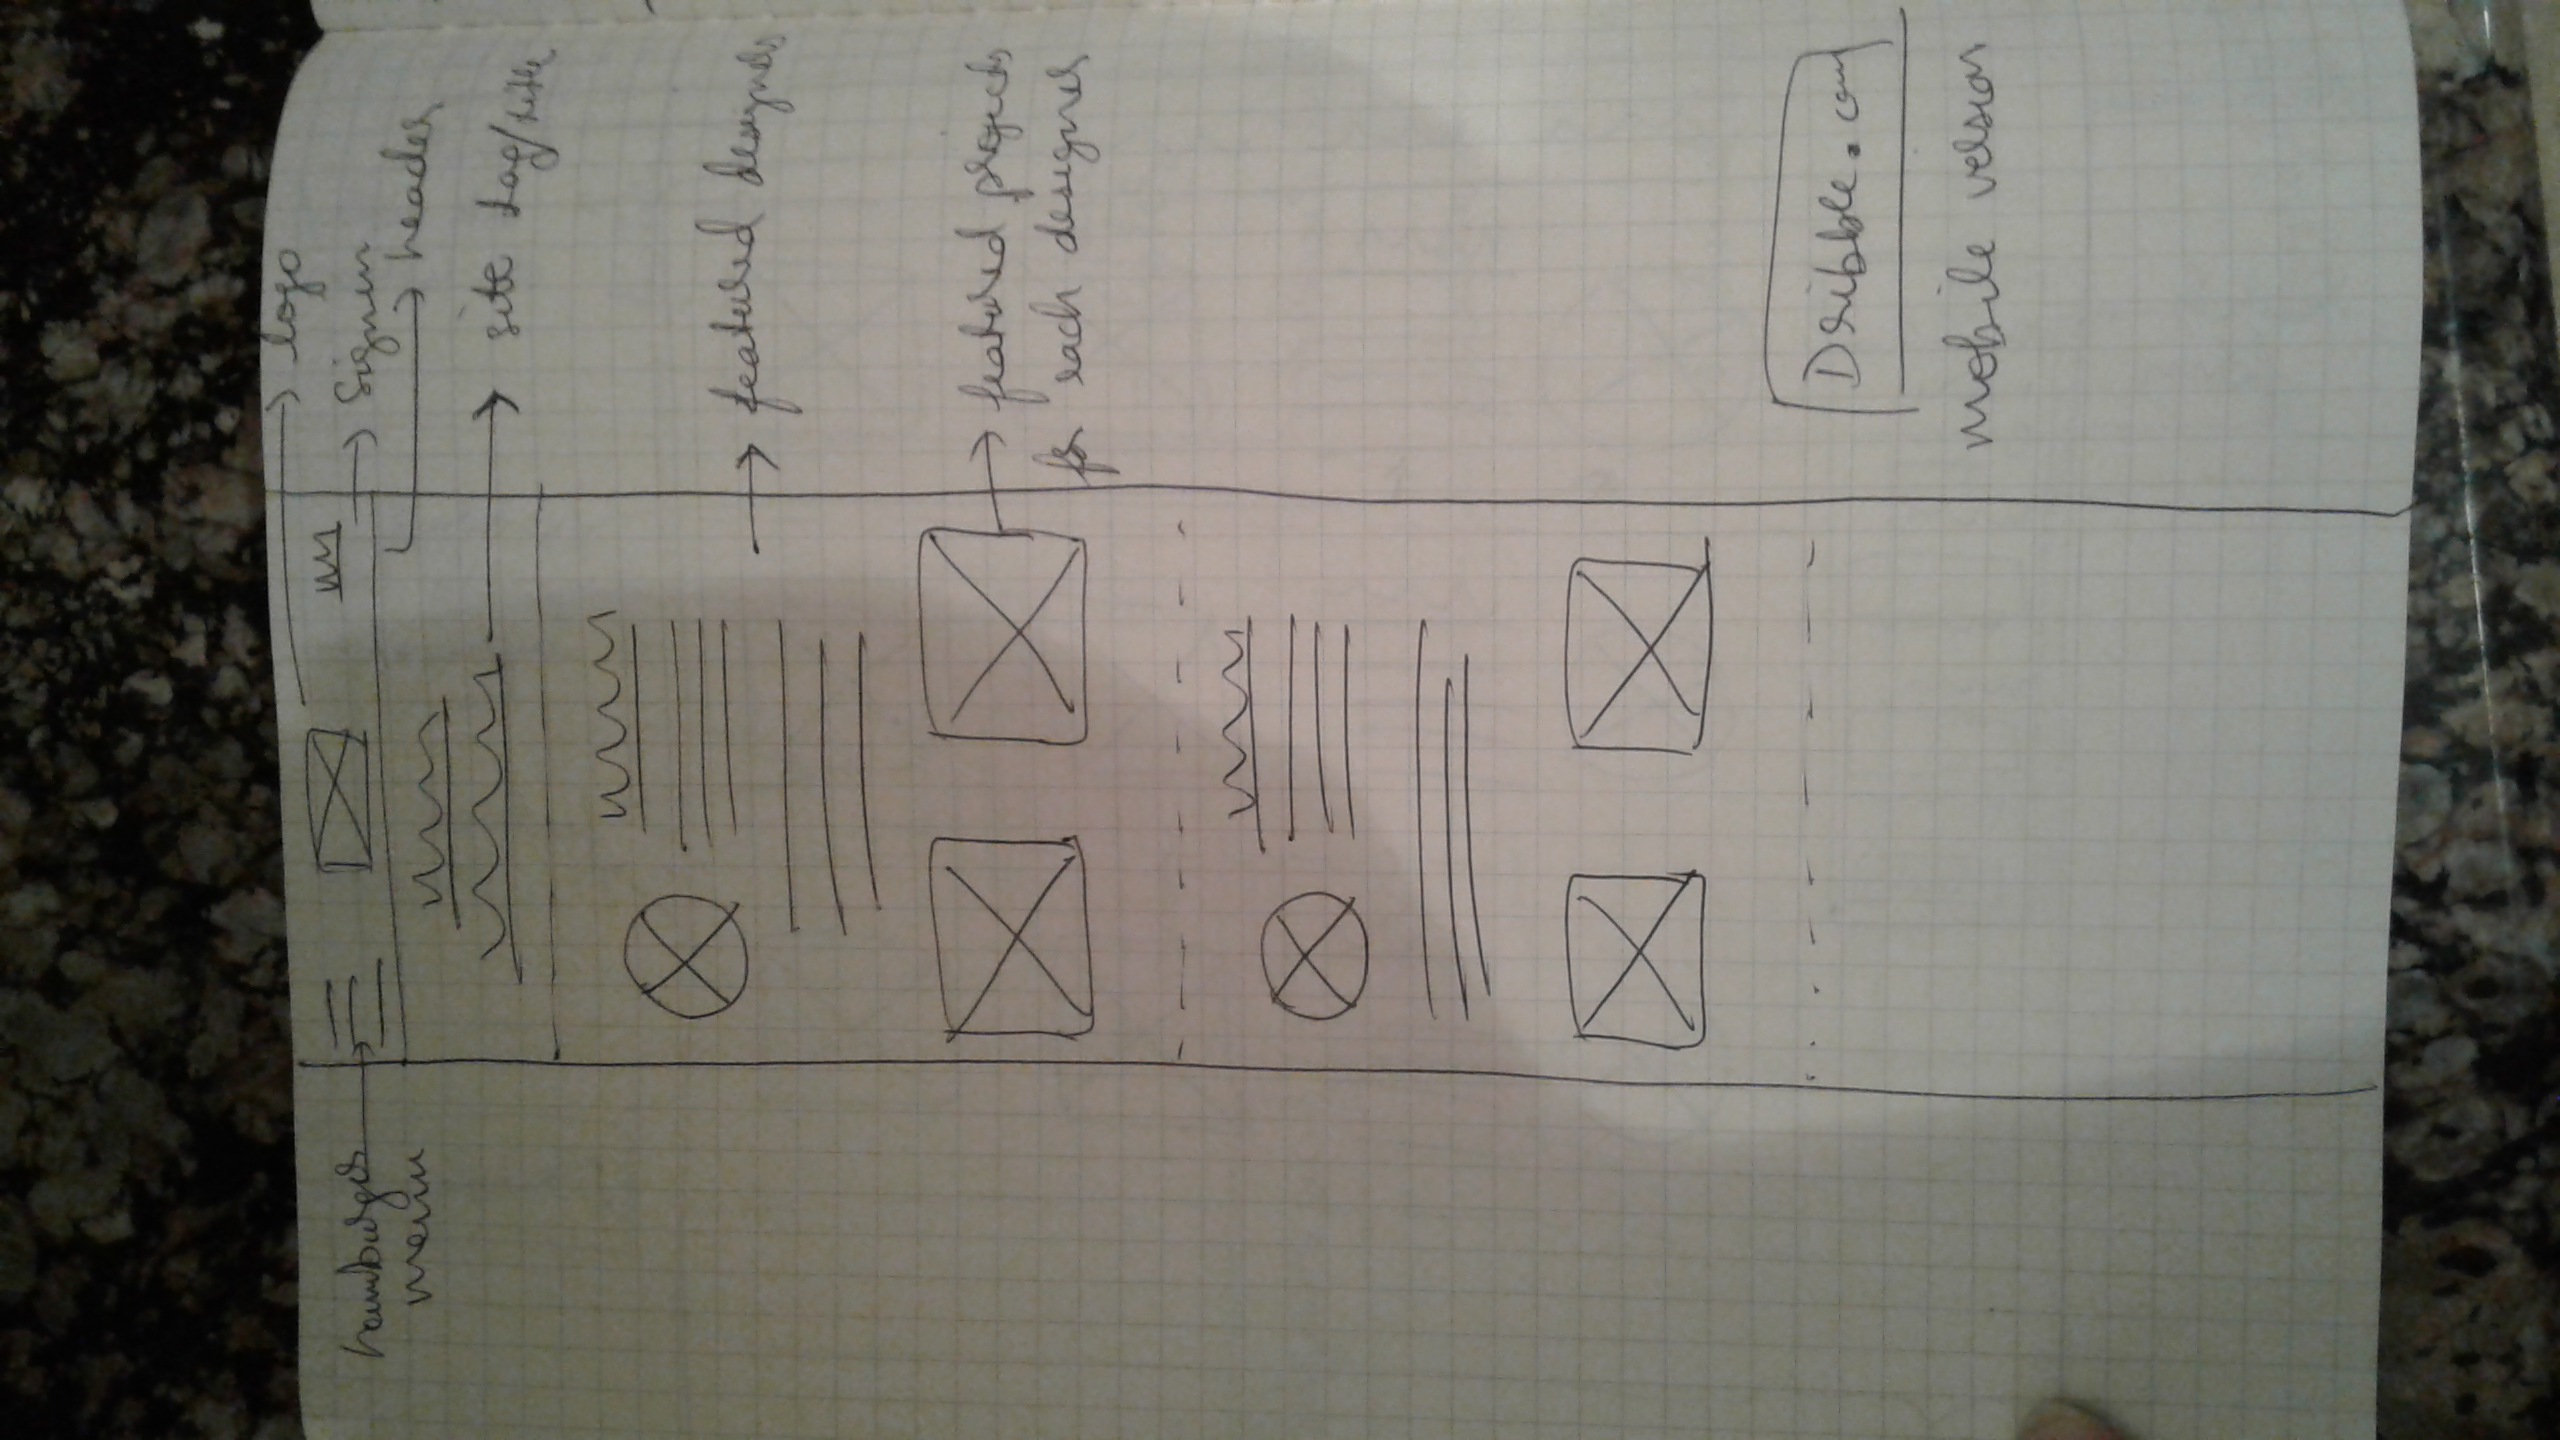 logo
hamburger
menu
Signin
header
site tag/title
featured designers
featured projects
for each designer
Dribble.com
mobile version